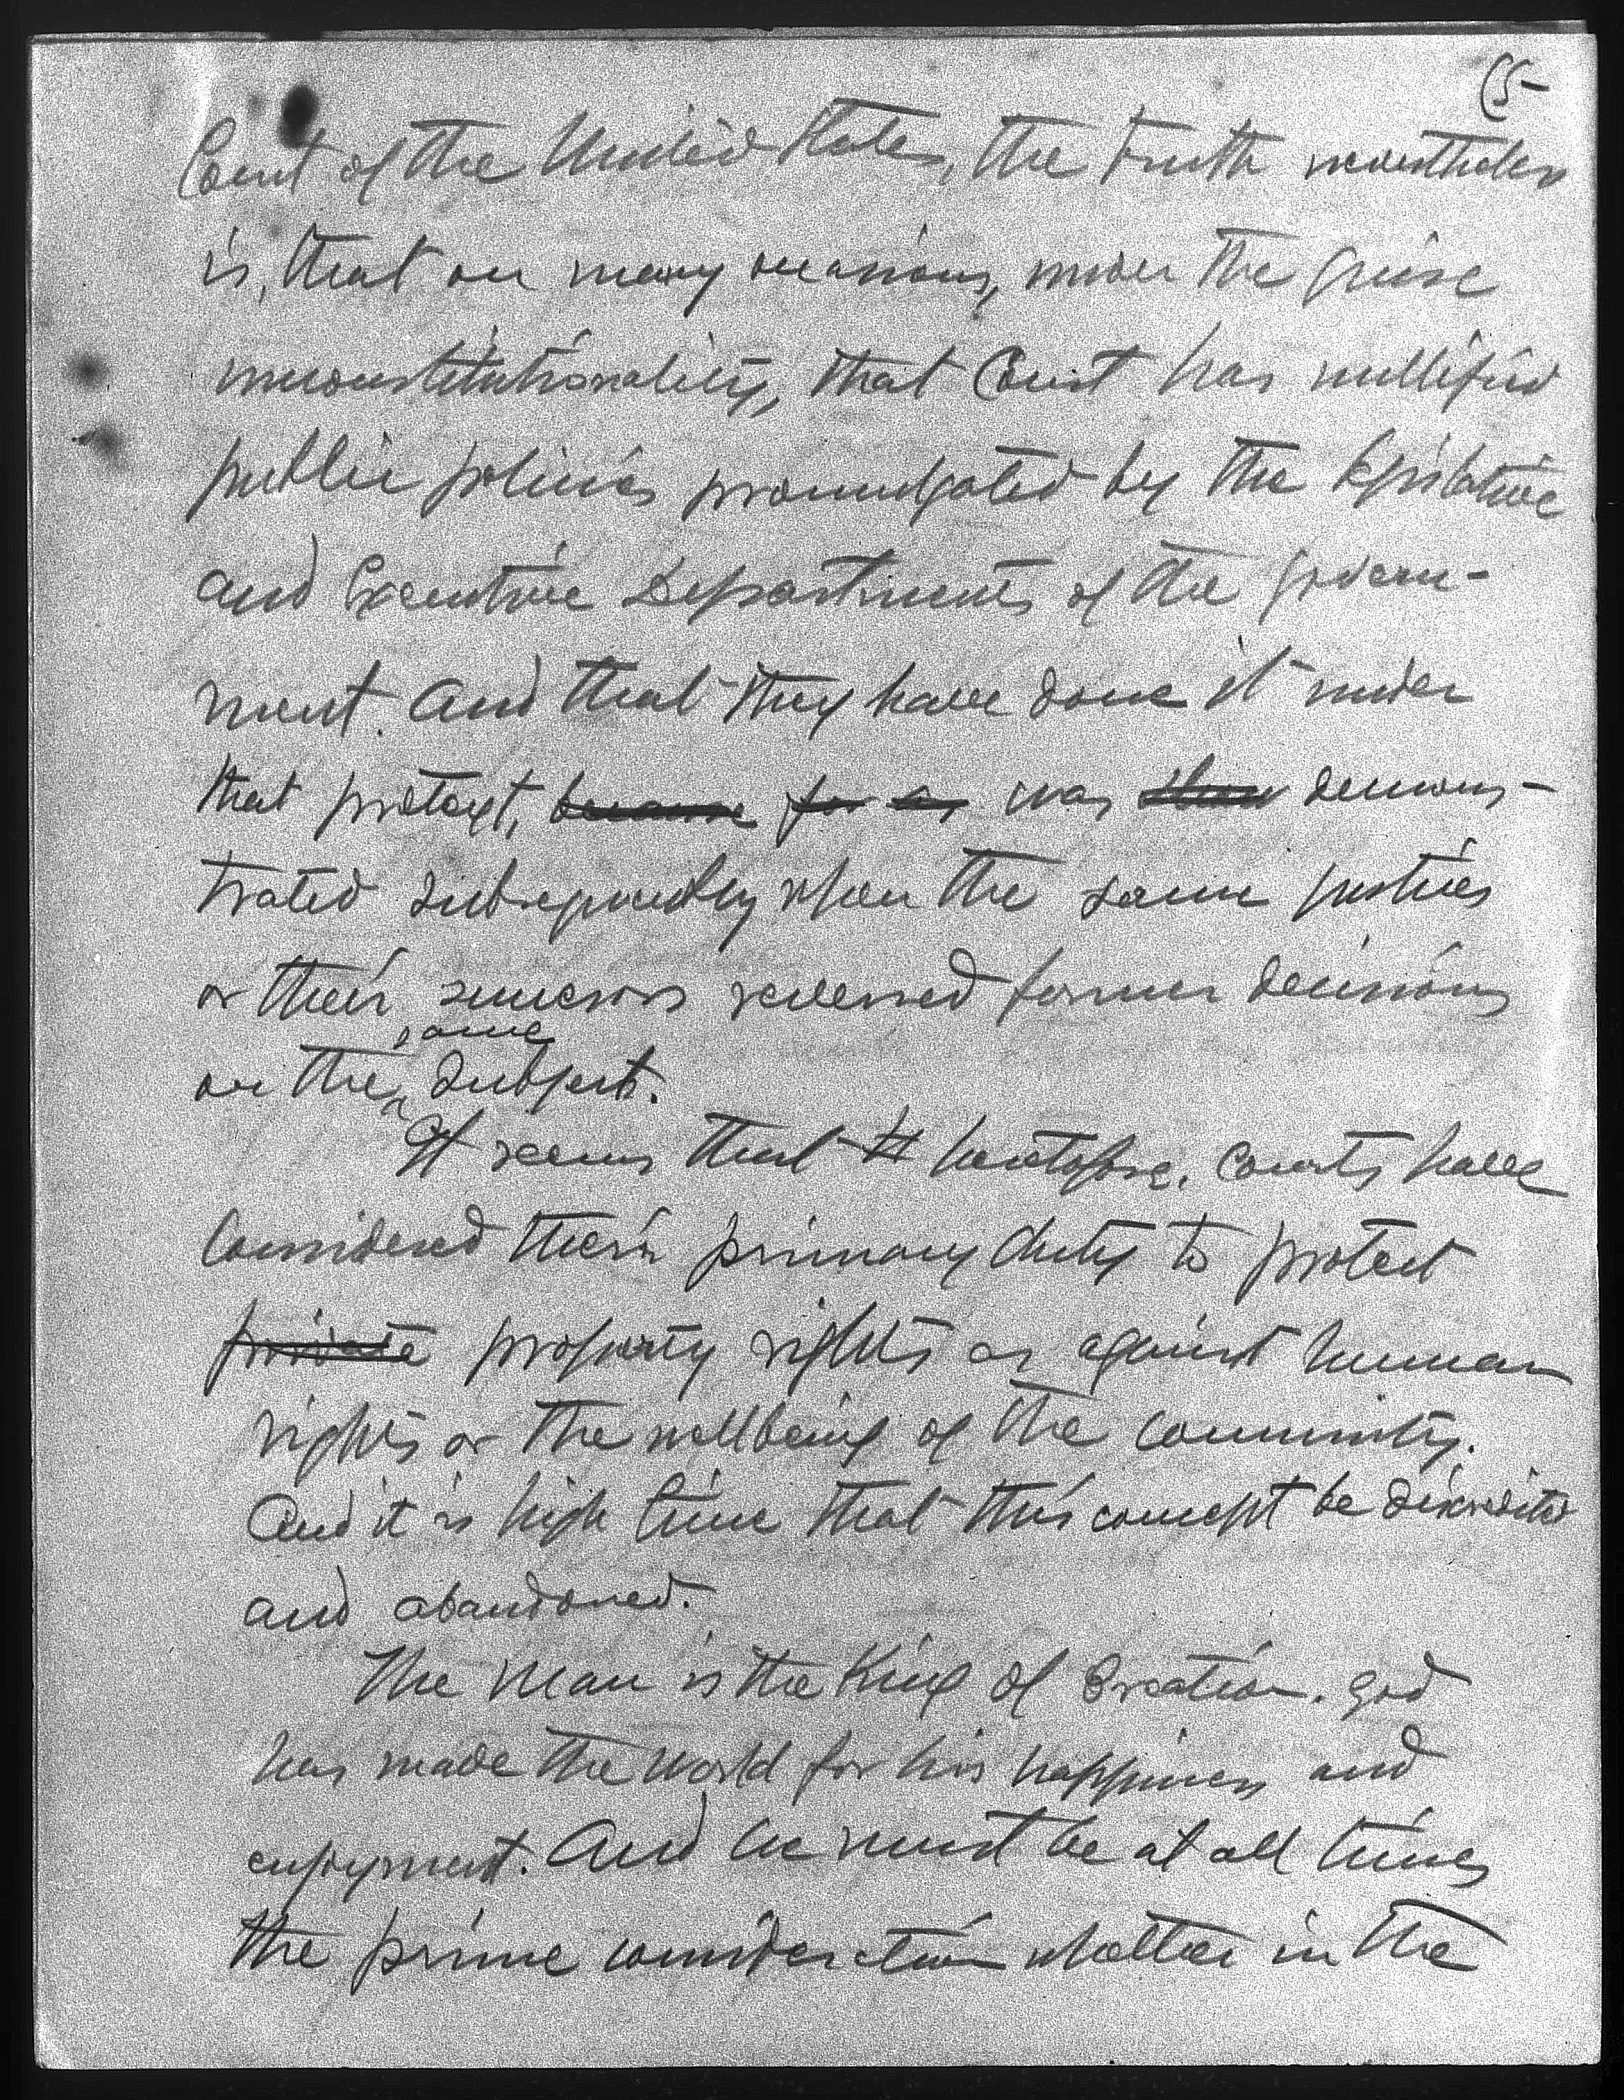 (5-
Court of the United States, the truth nevertheless
is, that on many occasions, under the guise
unconstitutionality, that Court has nullified
public policies promulgated by the legislative
and Executive Departments of the Govern-
ment. And that they have done it under
that pretext, because for as was shown demons-
trated subsequently when the same justices
or their successors reversed former decisions
on the same subject.
It seems that tt heretofore, courts have
considered their primary duty to protect
private property rights as against human
rights or the wellbeing of the community.
And it is high time that this concept be discredited
and abandoned.
The Man is the King of Creation. God
has made the world for his happiness and
enjoyment. And he must be at all times
the prime consideration whether in the